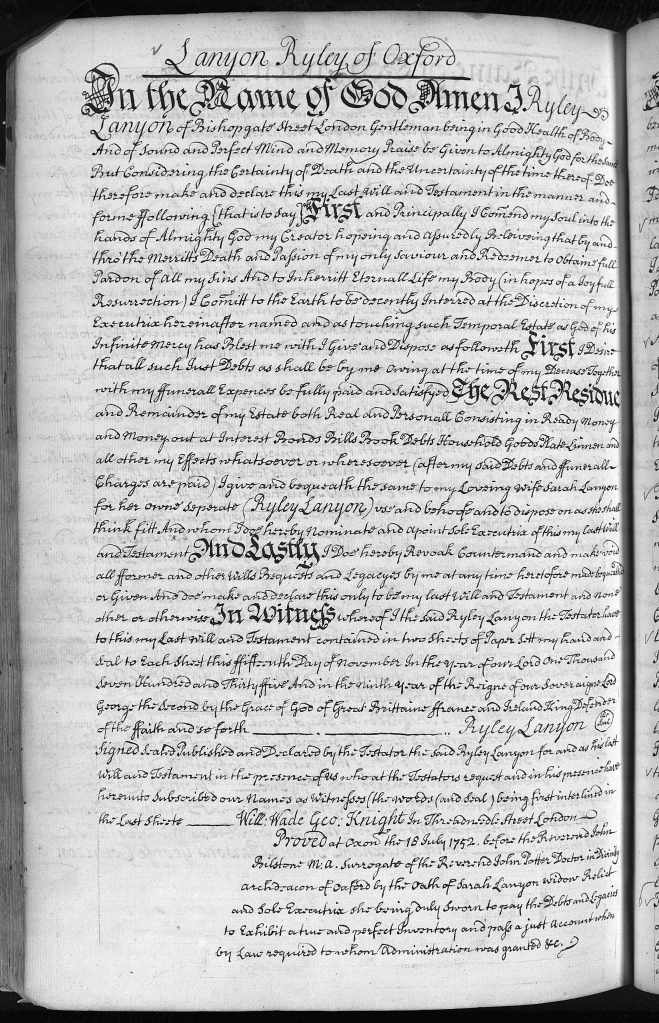 Lanyon Ryley of Oxford
In the Name of God Amen I Ryley
Lanyon of Bishopgate Street London Gentleman being in Good Health of Body
And of Sound and Perfect Mind and Memory Praise be Given to Almighty God for the same
But Considering the Certainty of Death and the Uncertainty of the time there of Doe
therefore make and declare this my Last Will and Testament in the manner and
forme ffollowing (that is to say) First and Principally I Comend my Soul into the
hands of Almighty God my Creator hopeing and assuredly Beleiveing that by and
thro' the Merrits Death and Passion of my only Saviour and Redeemer to Obtaine full
Pardon of all my Sins And to Inherritt Eternall Life my Body (in hopes of a Joyfull
Resurrection) I Comitt to the Earth to be decently Interred at the Discretion of my
Executrix hereinafter named and as touching such Temporal Estate as God of his
Infinite Mercy has Blest me with I Give and Dispose as followeth First I Desire
that all such Just Debts as shall be by me Owing at the time of my Decease Together
with my ffunerall Expences be fully paid and Satisfyed The Rest Residue
and Remainder of my Estate both Real and Personall Consisting in Ready Money
and Money out at Interest Bonds Bills Book Debts Household Goods Plate Linnen and
all other my Effects whatsoever or wheresoever (after my said Debts and ffunerall
Charges are paid) I give and bequeath the same to my Loveing Wife Sarah Lanyon
for her owne seperate (Ryley Lanyon) use and behoofe and to dispose on as she shall
think fitt And whom I doe hereby Nominate and apoint Sole Executrix of this my last Will
and Testament And Lastly I Doe hereby Revoak Countermand and make void
all fformer and other Wills Bequests and Legacyes by me at any time heretofore made bequeath'd
or Given And doe make and declare this only to be my last Will and Testament and none
other or otherwise In Witness whereof I the said Ryley Lanyon the Testator have
to this my Last Will and Testament contained in two Sheets of Paper Sett my hand and
Seal to Each Sheet this ffifteenth Day of November In the Year of our Lord One Thousand
Seven Hundred and Thirty ffive And in the Ninth Year of the Reigne of our Soveraigne Lord
George the Second by the Grace of God of Great Brittaine ffrance and Ireland King Defender
of the ffaith and so forth Ryley Lanyon Seal
Signed Sealed Published and Declared by the Testator the said Ryley Lanyon for and as his last
Will and Testament in the presence of us who at the Testators request and in his presence have
hereunto Subscribed our Names as Witnesses (the words (and Seal) being first interlined in
the Last Sheete Will: Wade Geo: Knight In Threadneedle Street London
Proved at Oxon the 18 July 1752. before the Reverend John
Bilstone M.A. Surrogate of the Reverend John Potter Doctor in Divinity
Archdeacon of Oxford by the Oath of Sarah Lanyon Widow Relict
and Sole Executrix she being duly Sworn to pay the Debts and Legacies
to Exhibit a true and perfect Inventory and pass a just Account when
by Law required to whom Administration was granted &c.